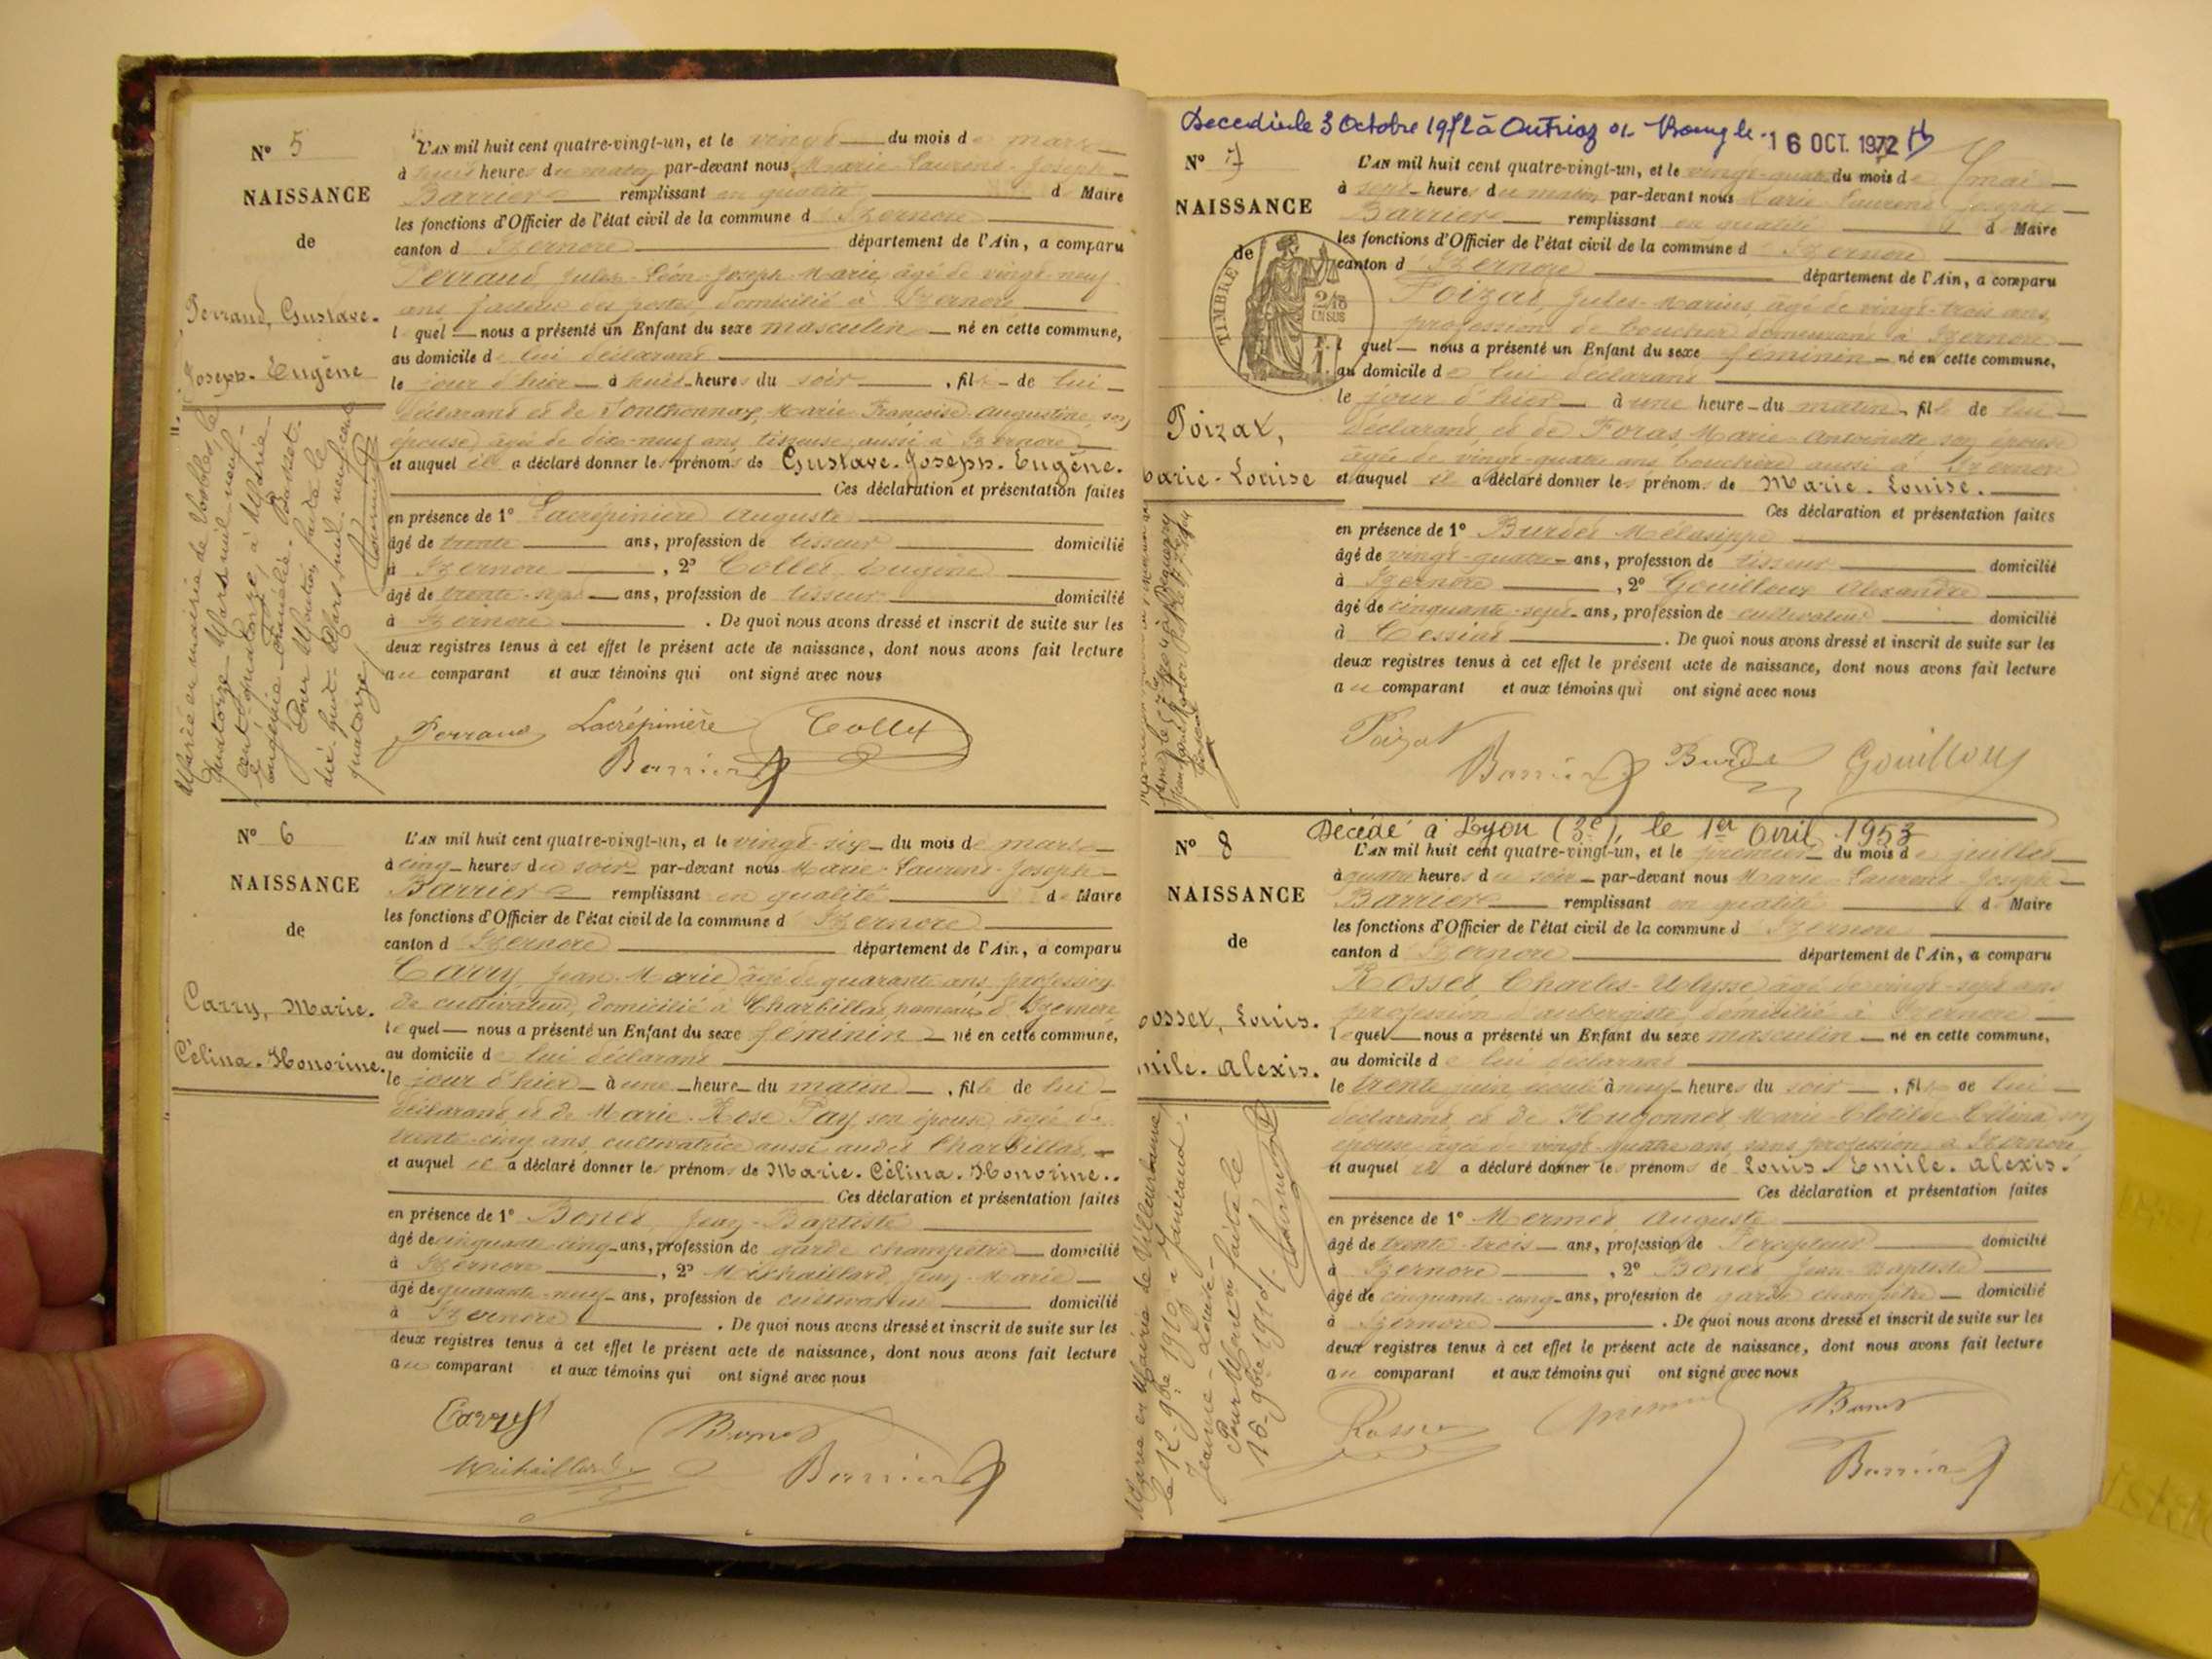 N° 5
NAISSANCE
de
Perraud, Gustave.
Joseph. Eugène
Marié en mairie de
quatorze Mars mil neuf
cent quatorze, à Marie
eugénie Amélie
Pour Mention faite le
dix huit Mars mil neuf cent
quatorze
L'AN mil huit cent quatre-vingt-un, et le vingt du mois de mars
à huit heures du matin par-devant nous, Marie Laurent Joseph
Barrier remplissant en qualité de Maire
les fonctions d'Officier de l'état civil de la commune d'Izernore
canton d'Izernore département de l'Ain, a comparu
Perraud, Jules Léon Joseph Marie, âgé de vingt neuf
ans facteur des postes, domicilié à Izernore
lequel nous a présenté un Enfant du sexe masculin né en cette commune,
au domicile de lui déclarant
le jour d'hier à huit heures du soir, fils de lui
déclarant et de Ponthonnax, Marie Françoise Augustine, son
épouse, âgée de dix-neuf ans, tisseuse aussi à Izernore
et auquel il a déclaré donner les prénoms de Gustave. Joseph. Eugène.
Ces déclaration et présentation faites
en présence de 1° Lacrépinière Auguste
âgé de trente ans, profession de tisseur domicilié
à Izernore, 2° Collet Eugène
âgé de trente-sept ans, profession de tisseur domicilié
à Izernore. De quoi nous avons dressé et inscrit de suite sur les
deux registres tenus à cet effet le présent acte de naissance, dont nous avons fait lecture
au comparant et aux témoins qui ont signé avec nous
Perraud Lacrépinière Collet
Barrier
N° 6
NAISSANCE
de
Carry, Marie.
Célina. Honorine.
L'AN mil huit cent quatre-vingt-un, et le vingt-six du mois de mars
à cinq heures du soir par-devant nous Marie Laurent Joseph
Barrier remplissant en qualité de Maire
les fonctions d'Officier de l'état civil de la commune d'Izernore
canton d'Izernore département de l'Ain, a comparu
Carry, Jean Marie âgé de quarante ans, profession
de cultivateur, domicilié à Charbillat, hameau d'Izernore
lequel nous a présenté un Enfant du sexe féminin né en cette commune,
au domicile de lui déclarant
le jour d'hier à une heure du matin, fille de lui
déclarant, et de Marie Rose Pay son épouse âgée de
trente-cinq ans, cultivatrice aussi audit Charbillat
et auquel il a déclaré donner les prénoms de Marie. Célina. Honorine.
Ces déclaration et présentation faites
en présence de 1° Bonet, Jean-Baptiste
âgé de cinquante cinq ans, profession de garde champêtre domicilié
à Izernore, 2° Michaillard, Jean-Marie
âgé de quarante-neuf ans, profession de cultivateur domicilié
à Izernore. De quoi nous avons dressé et inscrit de suite sur les
deux registres tenus à cet effet le présent acte de naissance, dont nous avons fait lecture
au comparant et aux témoins qui ont signé avec nous
Carry Bonet
Michaillard Barrier
Décédée le 3 Octobre 1972 à Outriaz 16 OCT. 1972
N° 7
NAISSANCE
de
TIMBRE
Poizat,
Marie-Louise
L'AN mil huit cent quatre-vingt-un, et le vingt-quatre du mois de mai
à sept heures du matin, par-devant nous Marie Laurent Joseph
Barrier remplissant en qualité de Maire
les fonctions d'Officier de l'état civil de la commune d'Izernore
canton d'Izernore département de l'Ain, a comparu
Poizat, Jules-Marius, âgé de vingt-trois ans,
profession de boucher demeurant à Izernore
lequel nous a présenté un Enfant du sexe féminin né en cette commune,
au domicile de lui déclarant
le jour d'hier à une heure du matin, fille de lui
déclarant, et de Foras, Marie-Antoinette, son épouse
âgée de vingt-quatre ans, bouchère aussi à Izernore
et auquel il a déclaré donner les prénoms de Marie. Louise.
Ces déclaration et présentation faites
en présence de 1° Burdet Mélasippe
âgé de vingt-quatre ans, profession de tisseur domicilié
à Izernore, 2° Gouilloux Alexandre
âgé de cinquante-sept ans, profession de cultivateur domicilié
à Cessiat. De quoi nous avons dressé et inscrit de suite sur les
deux registres tenus à cet effet le présent acte de naissance, dont nous avons fait lecture
au comparant et aux témoins qui ont signé avec nous
Poizat Barrier Burdet Gouilloux
Décédé à Lyon (3e), le 1er Avril 1953
N° 8
NAISSANCE
de
osset, Louis.
mile. Alexis.
Marié en Mairie de Villeurbanne
le 12 9bre 1910 à
Jeanne-Louise
Pour Mention faite le
16 9bre 1910
L'AN mil huit cent quatre-vingt-un, et le premier du mois de juillet
à quatre heures du soir par-devant nous Marie Laurent Joseph
Barrier remplissant en qualité de Maire
les fonctions d'Officier de l'état civil de la commune d'Izernore
canton d'Izernore département de l'Ain, a comparu
Rosset Charles-Ulysse âgé de vingt-sept ans
profession d'aubergiste, domicilié à Izernore
lequel nous a présenté un Enfant du sexe masculin né en cette commune,
au domicile de lui déclarant
le trente juin écoulé à neuf heures du soir, fils de lui
déclarant, et de Hugonnet, Marie Clotilde Célina, son
épouse, âgée de vingt-quatre ans, sans profession à Izernore
et auquel il a déclaré donner les prénoms de Louis. Emile. Alexis.
Ces déclaration et présentation faites
en présence de 1° Mermet Auguste
âgé de trente-trois ans, profession de Percepteur domicilié
à Izernore, 2° Bonet Jean-Baptiste
âgé de cinquante-cinq ans, profession de garde champêtre domicilié
à Izernore. De quoi nous avons dressé et inscrit de suite sur les
deux registres tenus à cet effet le présent acte de naissance, dont nous avons fait lecture
au comparant et aux témoins qui ont signé avec nous
Rosset Mermet Bonet
Barrier